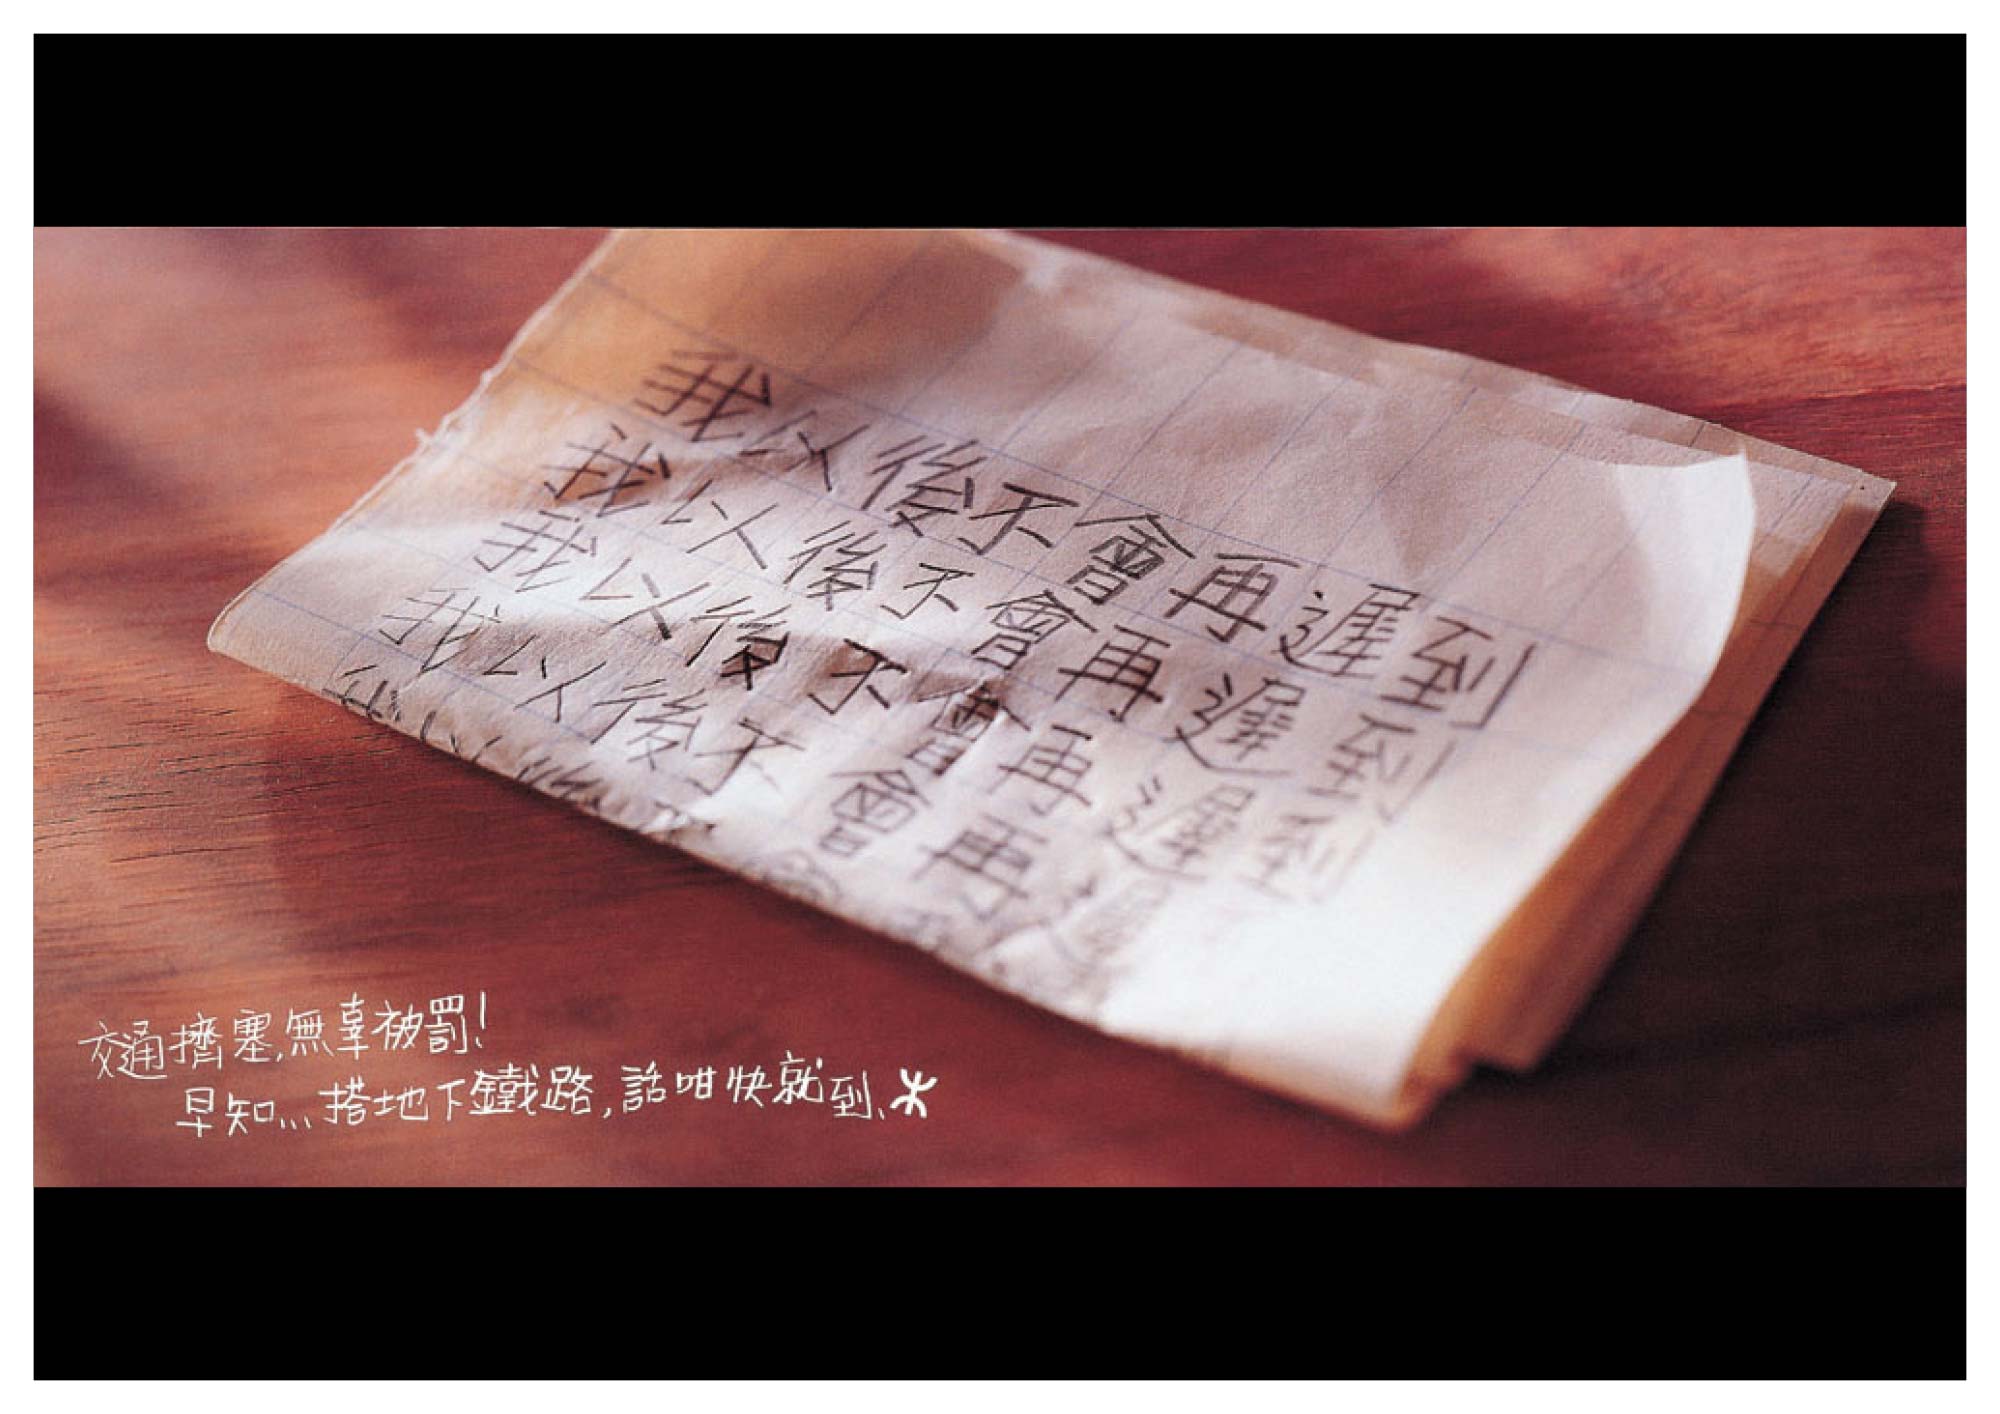 我以後不會再遲到
我以後不會再遲到
我以後不會再遲到
我以後不會再遲
我以後不會
交通擠塞,無辜被罰!
早知...搭地下鐵路,話咁快就到.